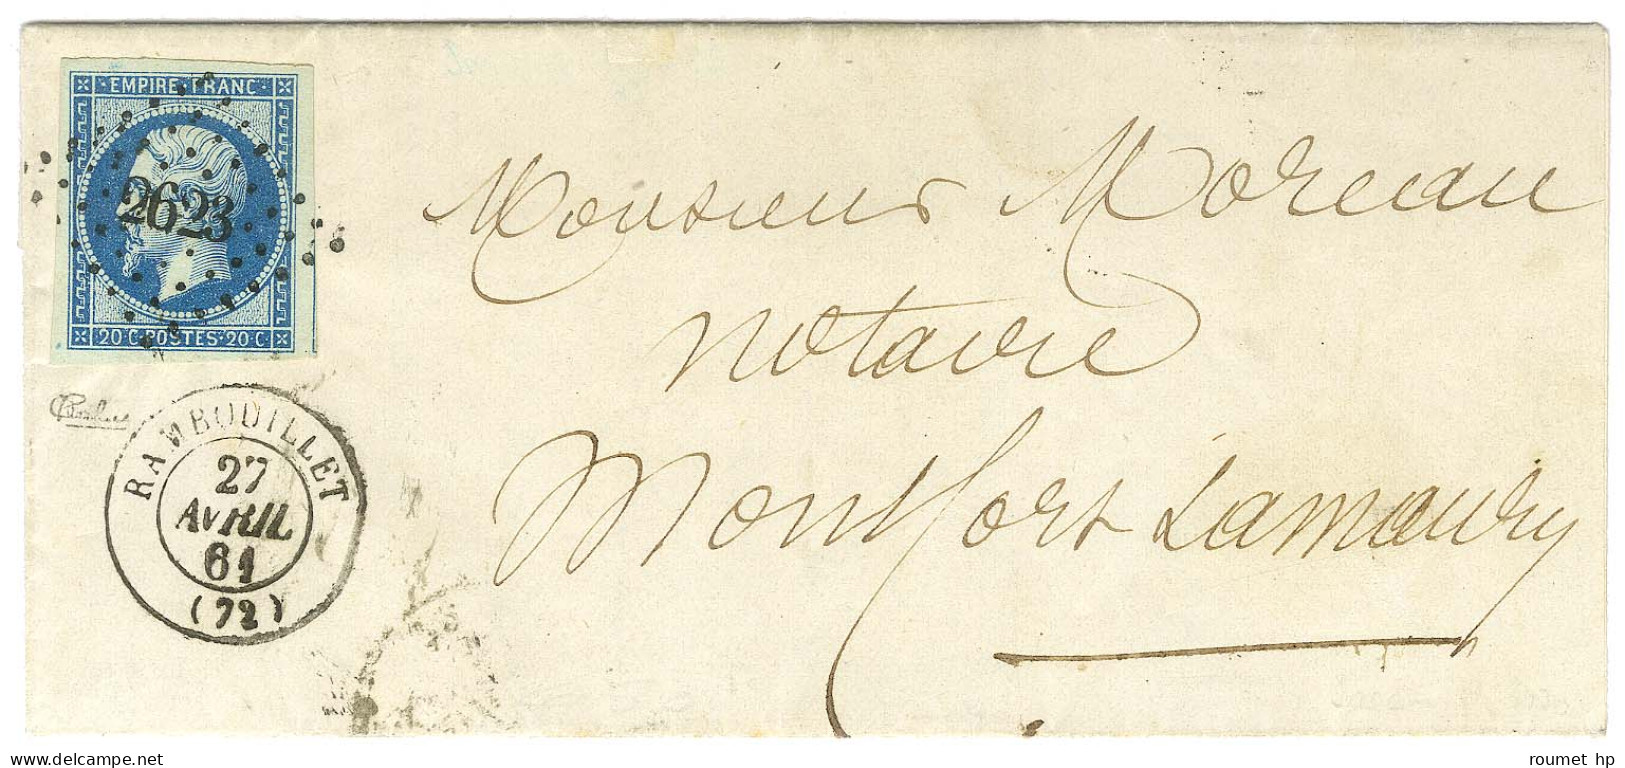 EMPIRE FRANC
2623
20·C·POSTES·20·C
RAMBOUILLET
27
AVRIL
61
(72)
Monsieur Moreau
notaire
Montfort Lamaury
roumet hp